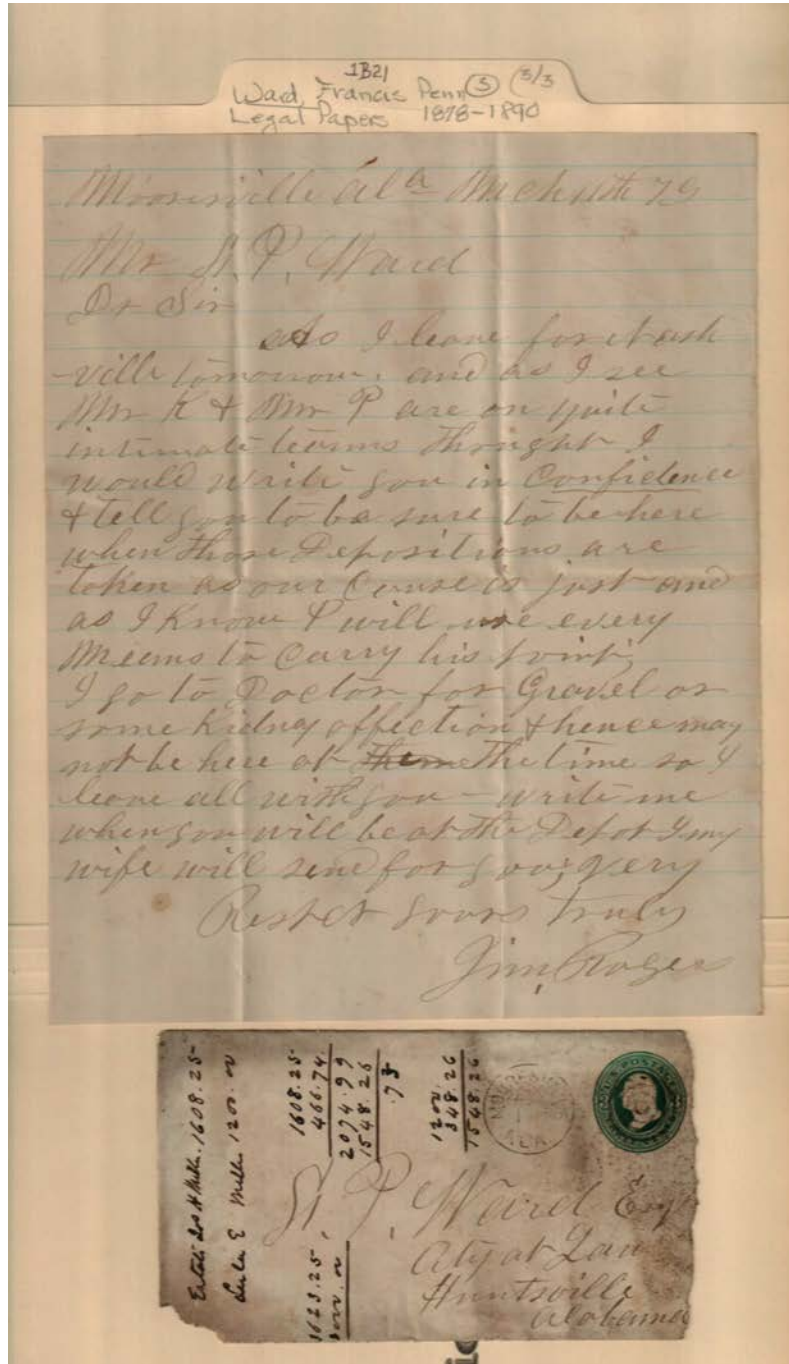 1B21
Ward, Francis Penn ③ (3/3
Legal Papers 1878-1890
Mooresville Ala Mch 11th 79
Mr F. P. Ward
Dr Sir
As I leave for Nash
-ville tomorrow. and as I see
Mr K & Mr P are on quite
intimate terms thought I
would write you in Confidence
& tell you to be sure to be here
when those Depositions are
taken as our Cause is just and
as I Know P will use every
Means to Carry his point,
I go to Doctor for Gravel or
some Kidney affection & hence may
not be here at the time so I
leave all with you - write me
when you will be at the Depot & my
wife will send for you; Very
Respct yours truly
Jim Roges
Estate H Mill. 1608.25
Lula E Mill 1200.00
1608.25
466.74
2074.99
1548.26
.73
1200.
348.26
1548.26
1623.25
ALA.
F. P. Ward Esq
Aty at Law
Huntsville
Alabama